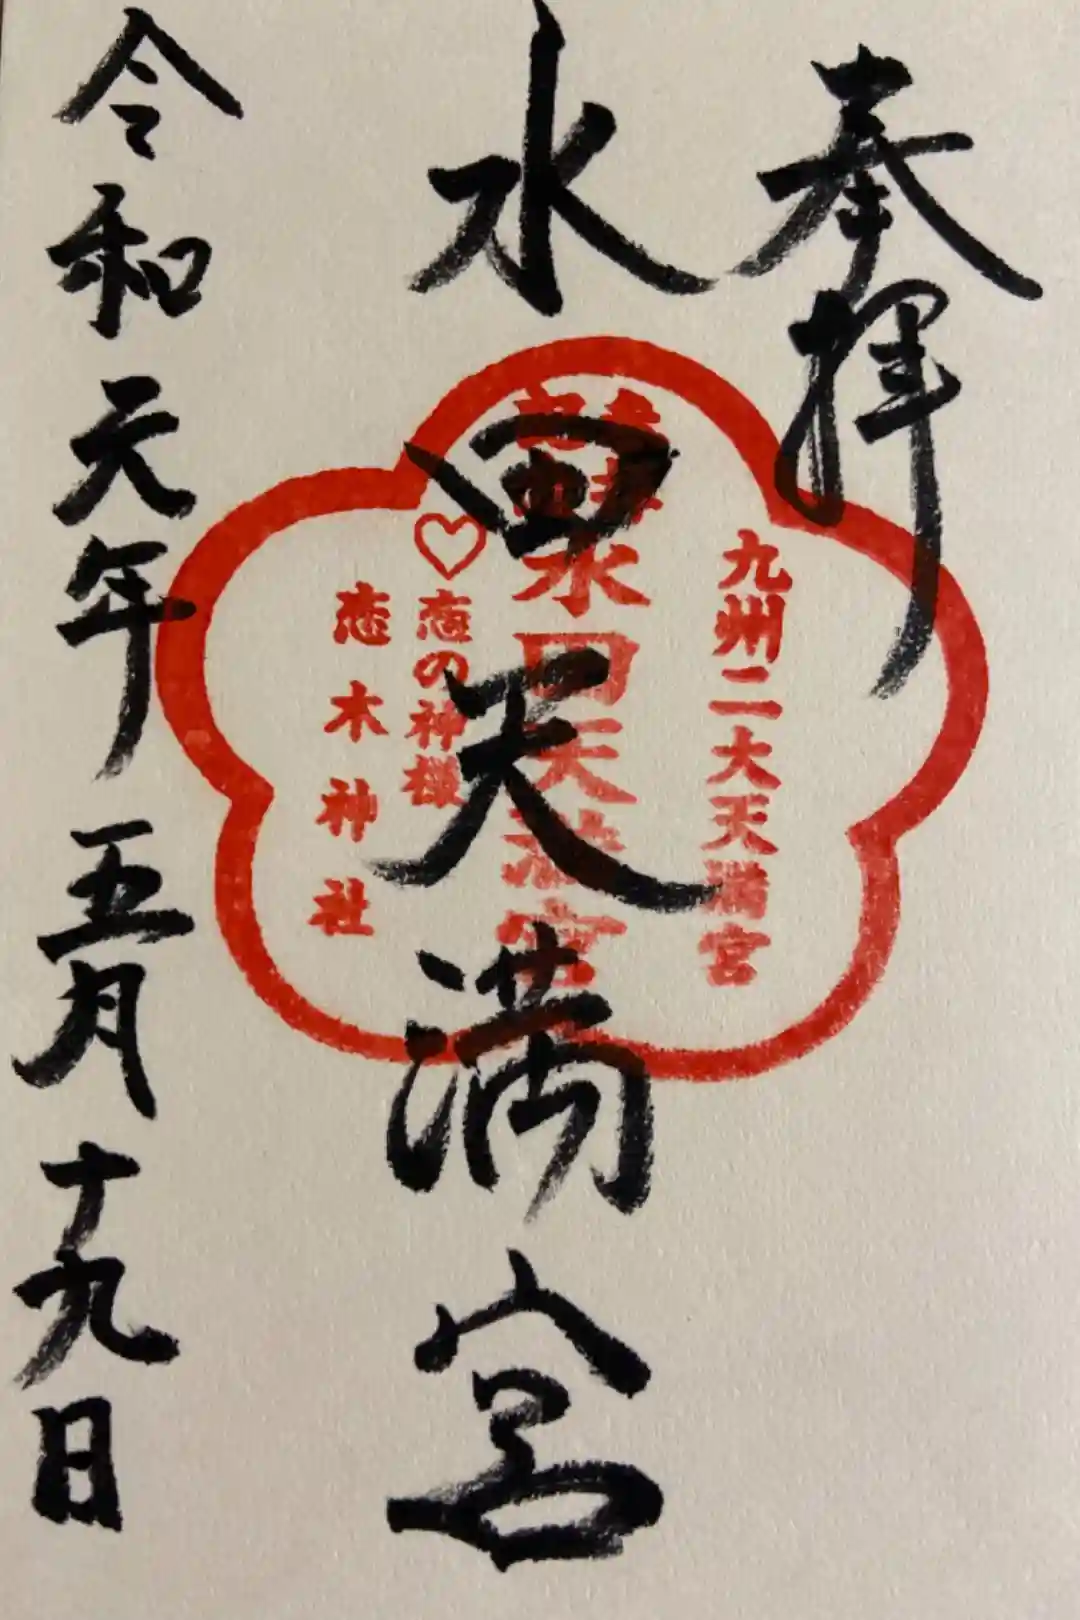 奉拝
水田天満宮
令和元年五月十九日
九州二大天満宮
水田天満宮
恋の神様
恋木神社